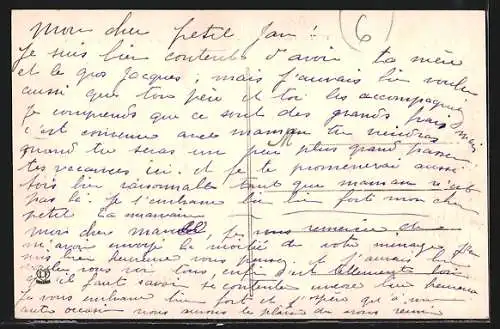 Mon cher petit Jan !
Je suis bien contente d'avoir ta mère
et le gros Jacques, mais j'aurais bien voulu
aussi que ton père et toi les accompagniez
Je comprends que ce sont des grands frais, mais
c'est convenu avec maman tu viendras
quand tu seras un peu plus grand passer
tes vacances ici. et je te promenerai aussi
sois bien raisonnable tant que maman n'est
pas là. Je t'embrasse bien bien fort mon cher
petit Ta marraine
Mon cher, je vous remercie de
m'avoir envoyé la moitié de votre ménage. Je
suis bien heureuse vous pensez et j'aurais bien
voulu vous voir tous, enfin c'est tellement loin
qu'il faut savoir se contenter encore bien heureux
Je vous embrasse bien fort et j'espère qu'à une
autre occasion nous aurons le plaisir de vous revoir
6